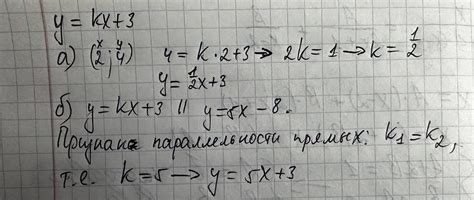 y = kx+3
а) (2; 4) 4 = k·2+3 → 2k = 1 → k = 1/2
x y
y = 1/2x+3
б) y = kx+3 || y = 5x − 8.
Признак параллельности прямых: k₁ = k₂,
т.е. k = 5 → y = 5x+3